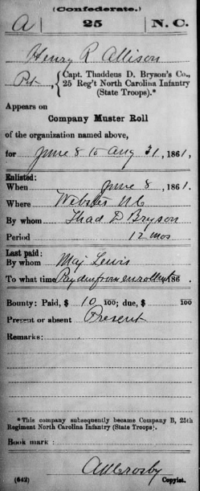 (Confederate.)
A 25 N. C.
Henry R Allison
Pvt, Capt. Thaddeus D. Bryson's Co.,
25 Reg't North Carolina Infantry
(State Troops).*
Appears on
Company Muster Roll
of the organization named above,
for June 8 to Aug 31, 1861.
Enlisted:
When June 8, 1861.
Where Webster NC
By whom Thad D Bryson
Period 12 mos
Last paid:
By whom Maj Lewis
To what time Pay due from enrollment 186 .
Bounty: Paid, $ 10 100; due, $ 100
Present or absent Present
Remarks:
*This company subsequently became Company B, 25th
Regiment North Carolina Infantry (State Troops).
Book mark:
(642) Copyist.